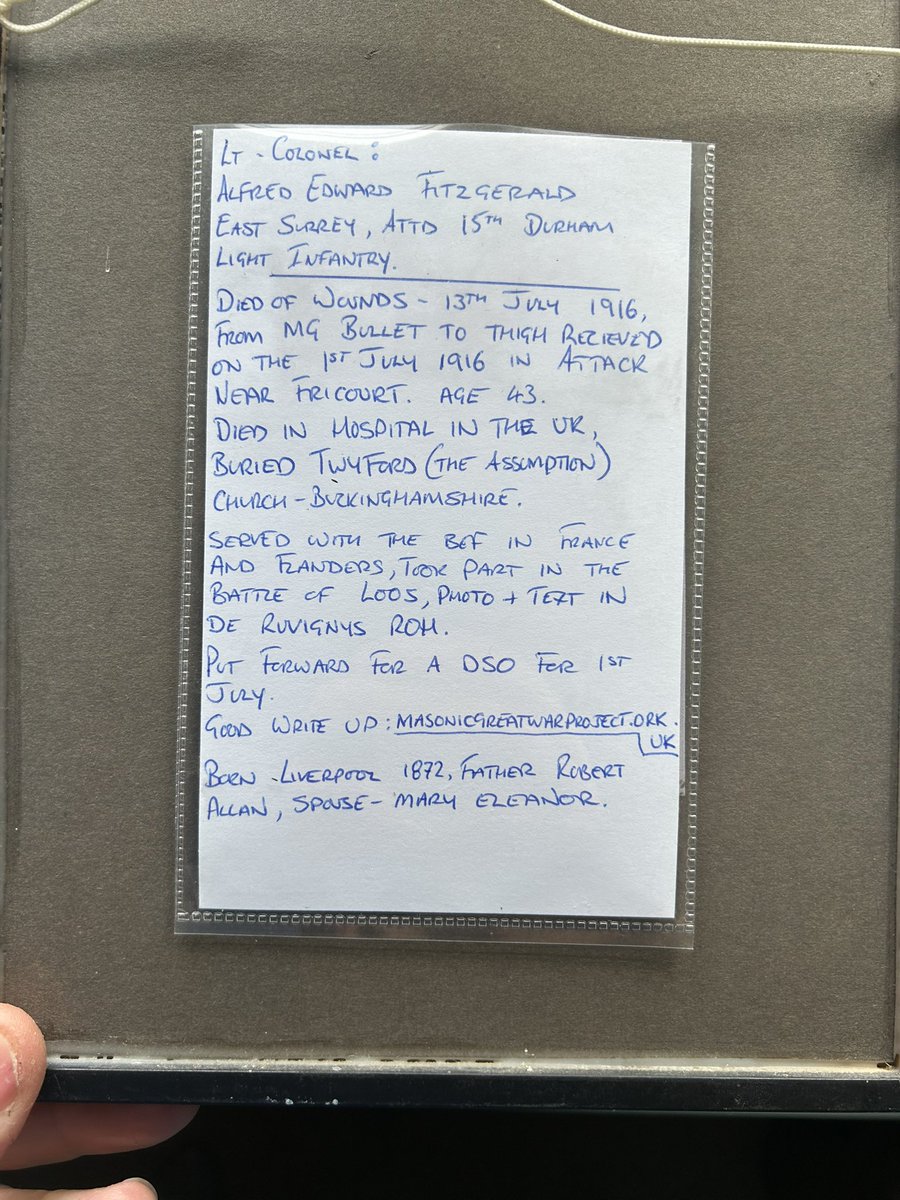 LT - COLONEL:
ALFRED EDWARD FITZGERALD
EAST SURREY, ATTD 15TH DURHAM
LIGHT INFANTRY.
DIED OF WOUNDS - 13TH JULY 1916,
FROM MG BULLET TO THIGH RECIEVED
ON THE 1ST JULY 1916 IN ATTACK
NEAR FRICOURT. AGE 43.
DIED IN HOSPITAL IN THE UK,
BURIED TWYFORD (THE ASSUMPTION)
CHURCH - BUCKINGHAMSHIRE.
SERVED WITH THE BEF IN FRANCE
AND FLANDERS, TOOK PART IN THE
BATTLE OF LOOS, PHOTO + TEXT IN
DE RUVIGNYS ROH.
PUT FORWARD FOR A DSO FOR 1ST
JULY.
GOOD WRITE UP: MASONICGREATWARPROJECT.ORK.
UK
BORN - LIVERPOOL 1872, FATHER ROBERT
ALLAN, SPOUSE - MARY ELEANOR.